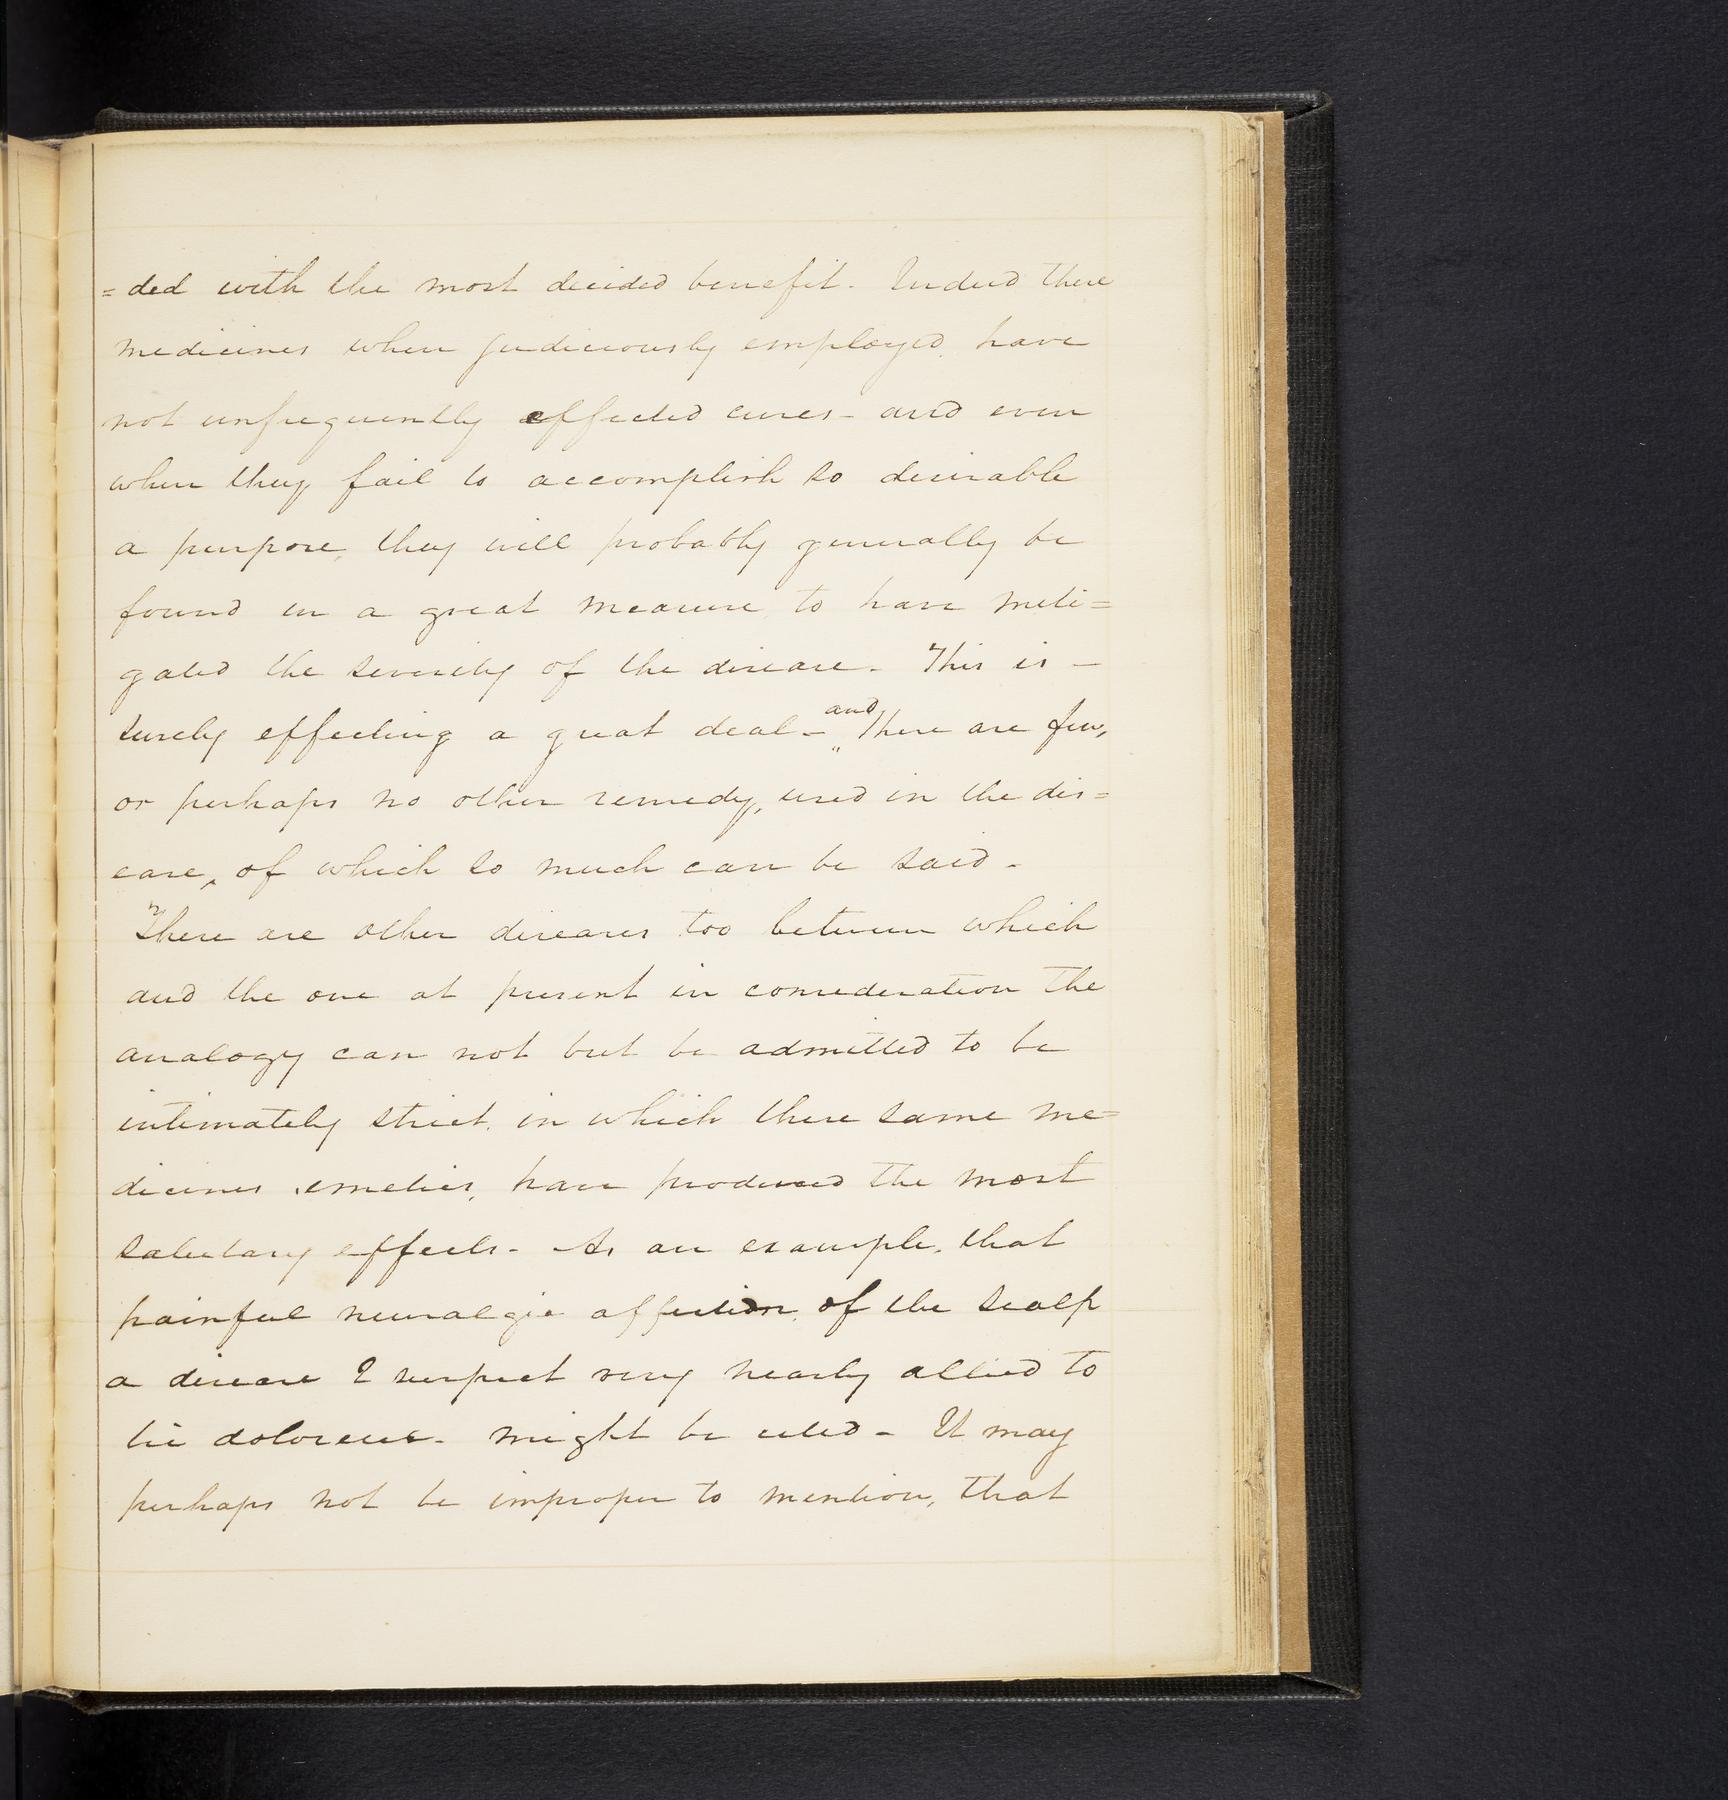 =ded with the most decided benefit. Indeed these
medicines when judiciously employed, have
not unfrequently effected cures - and even
when they fail to accomplish so desirable
a purpose, they will probably generally be
found in a great measure, to have miti=
gated the severity of the disease. This is -
surely effecting a great deal - and There are few,
or perhaps no other remedy, used in the dis=
ease, of which so much can be said -
There are other diseases too between which
and the one at present in consideration the
analogy can not but be admitted to be
intimately strict, in which these same me=
dicines emetics, have produced the most
salutary effects - As an example, that
painful neuralgic affection, of the scalp
a disease I suspect very nearly allied to
tic doloreux - might be cited - It may
perhaps not be improper to mention, that